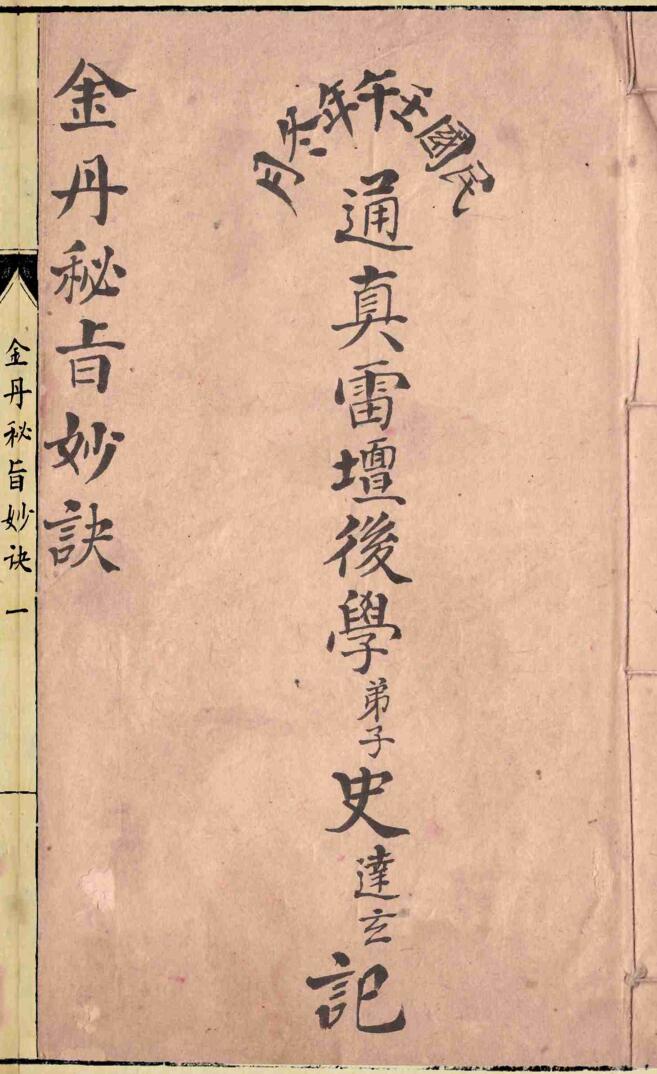 民國壬午年六月
通真雷壇後學弟子史達玄記
金丹秘旨妙訣
金丹秘旨妙诀 一